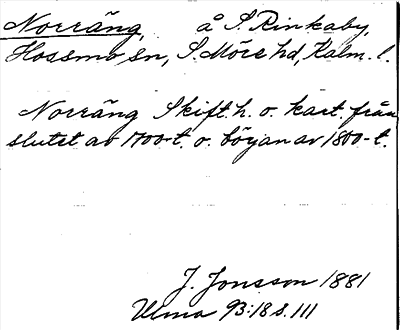 Norräng, å S. Rinkaby,
Hossmo sn, S. Möre hd, Kalm. l.
Norräng Skift. h. o. kart. från
slutet av 1700-t. o. början av 1800-t.
J. Jonsson 1881
Ulma 93:18 s. 111